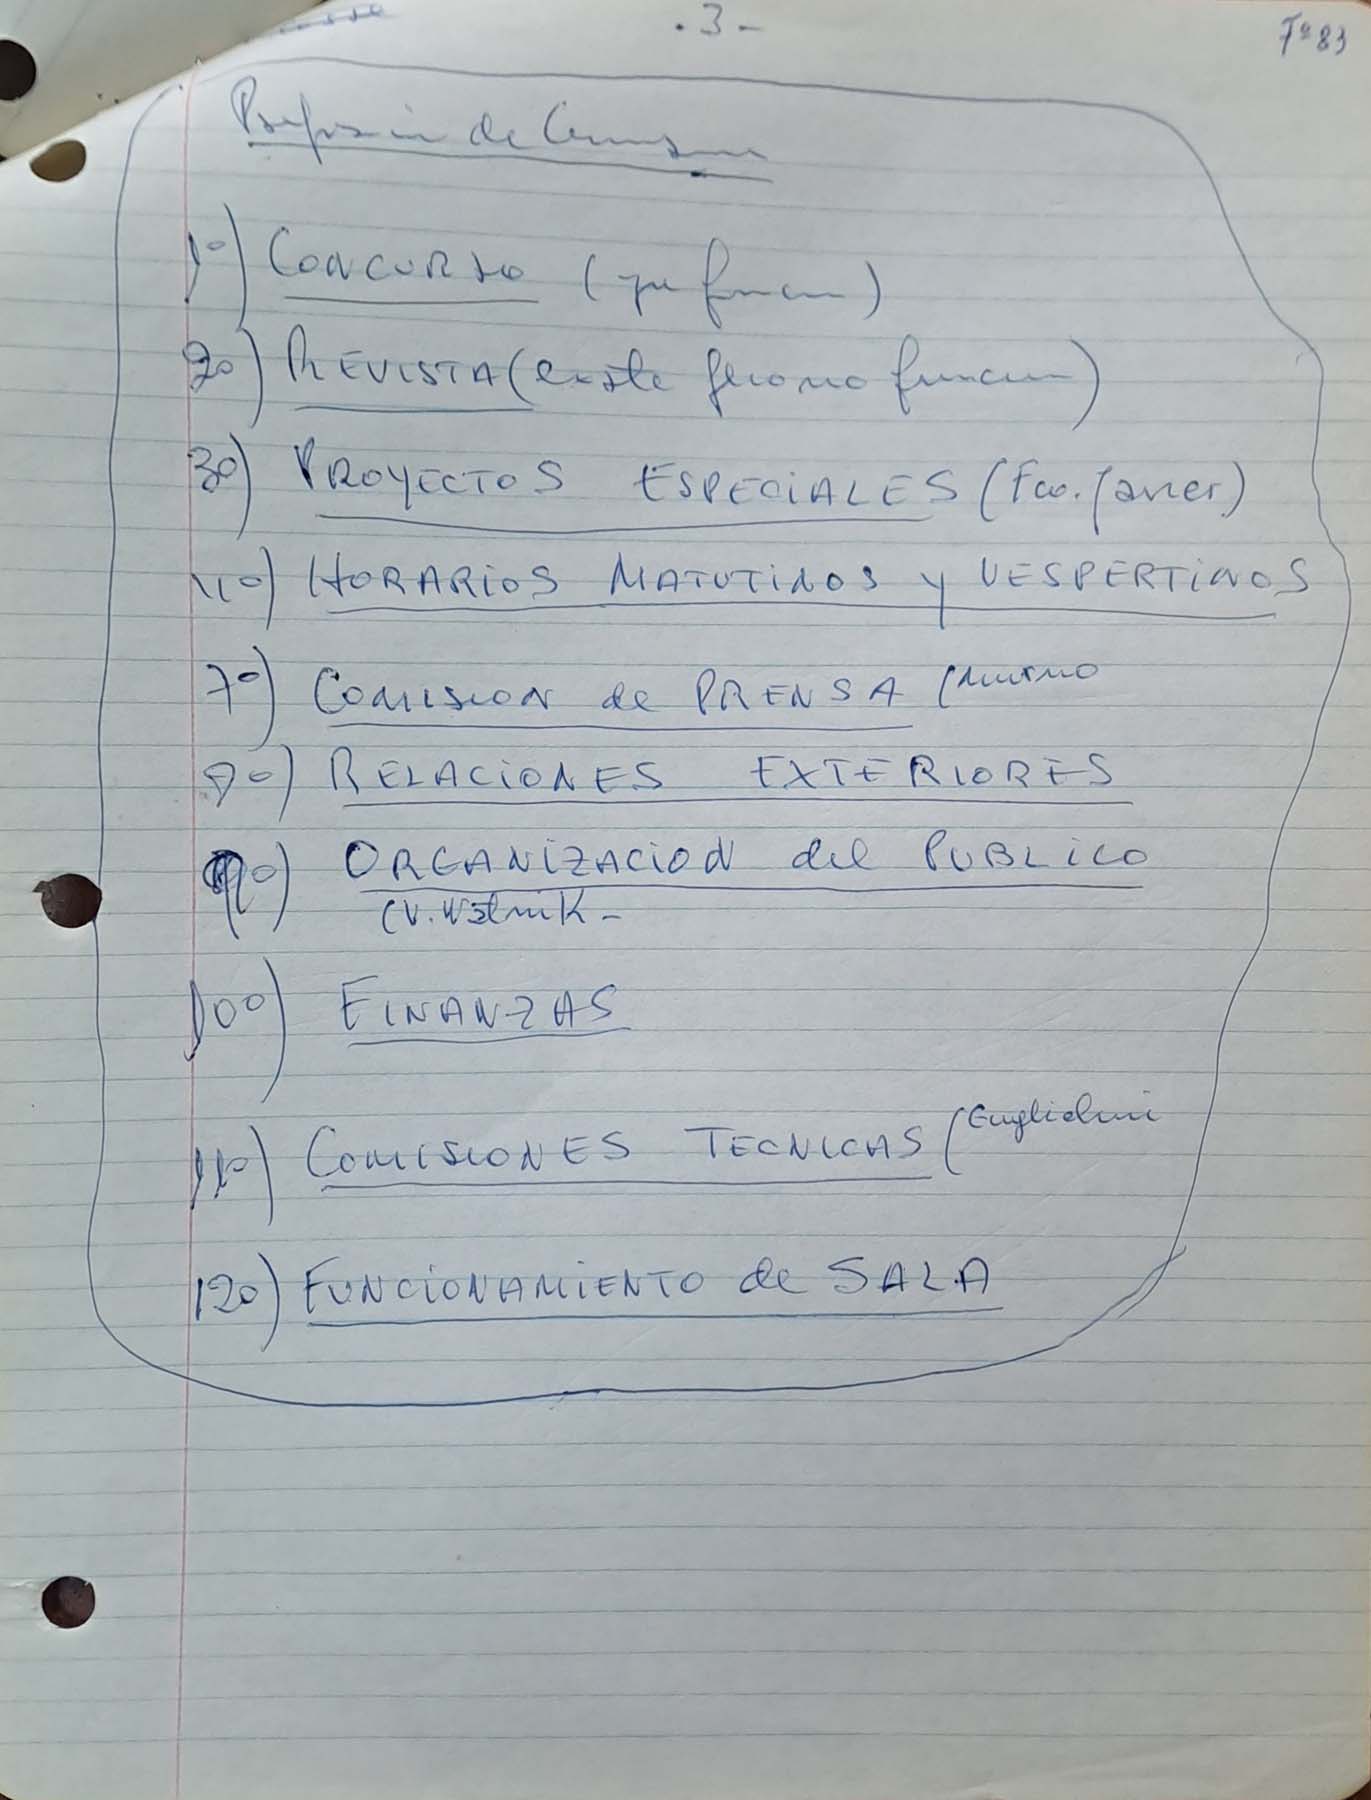 - 3 -
Fº 83
de
1º) CONCURSO (que funcion)
2º) REVISTA (existe pero no funcion)
3º) PROYECTOS ESPECIALES (Fco. Javier)
4º) HORARIOS MATUTINOS y VESPERTINOS
7º) COMISION de PRENSA (
8º) RELACIONES EXTERIORES
9º) ORGANIZACION del PUBLICO
(V.
10º) FINANZAS
11º) COMISIONES TECNICAS (
12º) FUNCIONAMIENTO de SALA